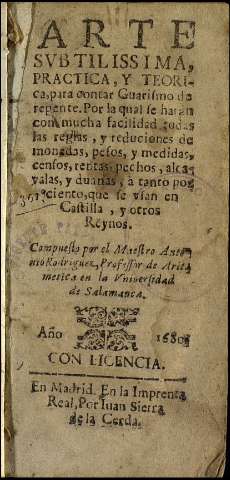 ARTE
SVBTILISSIMA,
PRACTICA, Y TEORI-
ca, para contar Guarismo de
repente. Por la qual se haran
con mucha facilidad todas
las reglas, y reduciones de
monedas, pesos, y medidas,
censos, rentas, pechos, alca-
valas, y duanas, a tanto por
ciento, que se vsan en
Castilla, y otros
Reynos.
Compuesto por el Maestro Anto-
nio Rodriguez, Professor de Arit-
metica en la Vniversidad
de Salamanca.
Año 1680
CON LICENCIA.
En Madrid. En la Imprenta
Real, Por Iuan Sierra
de la Cerda.